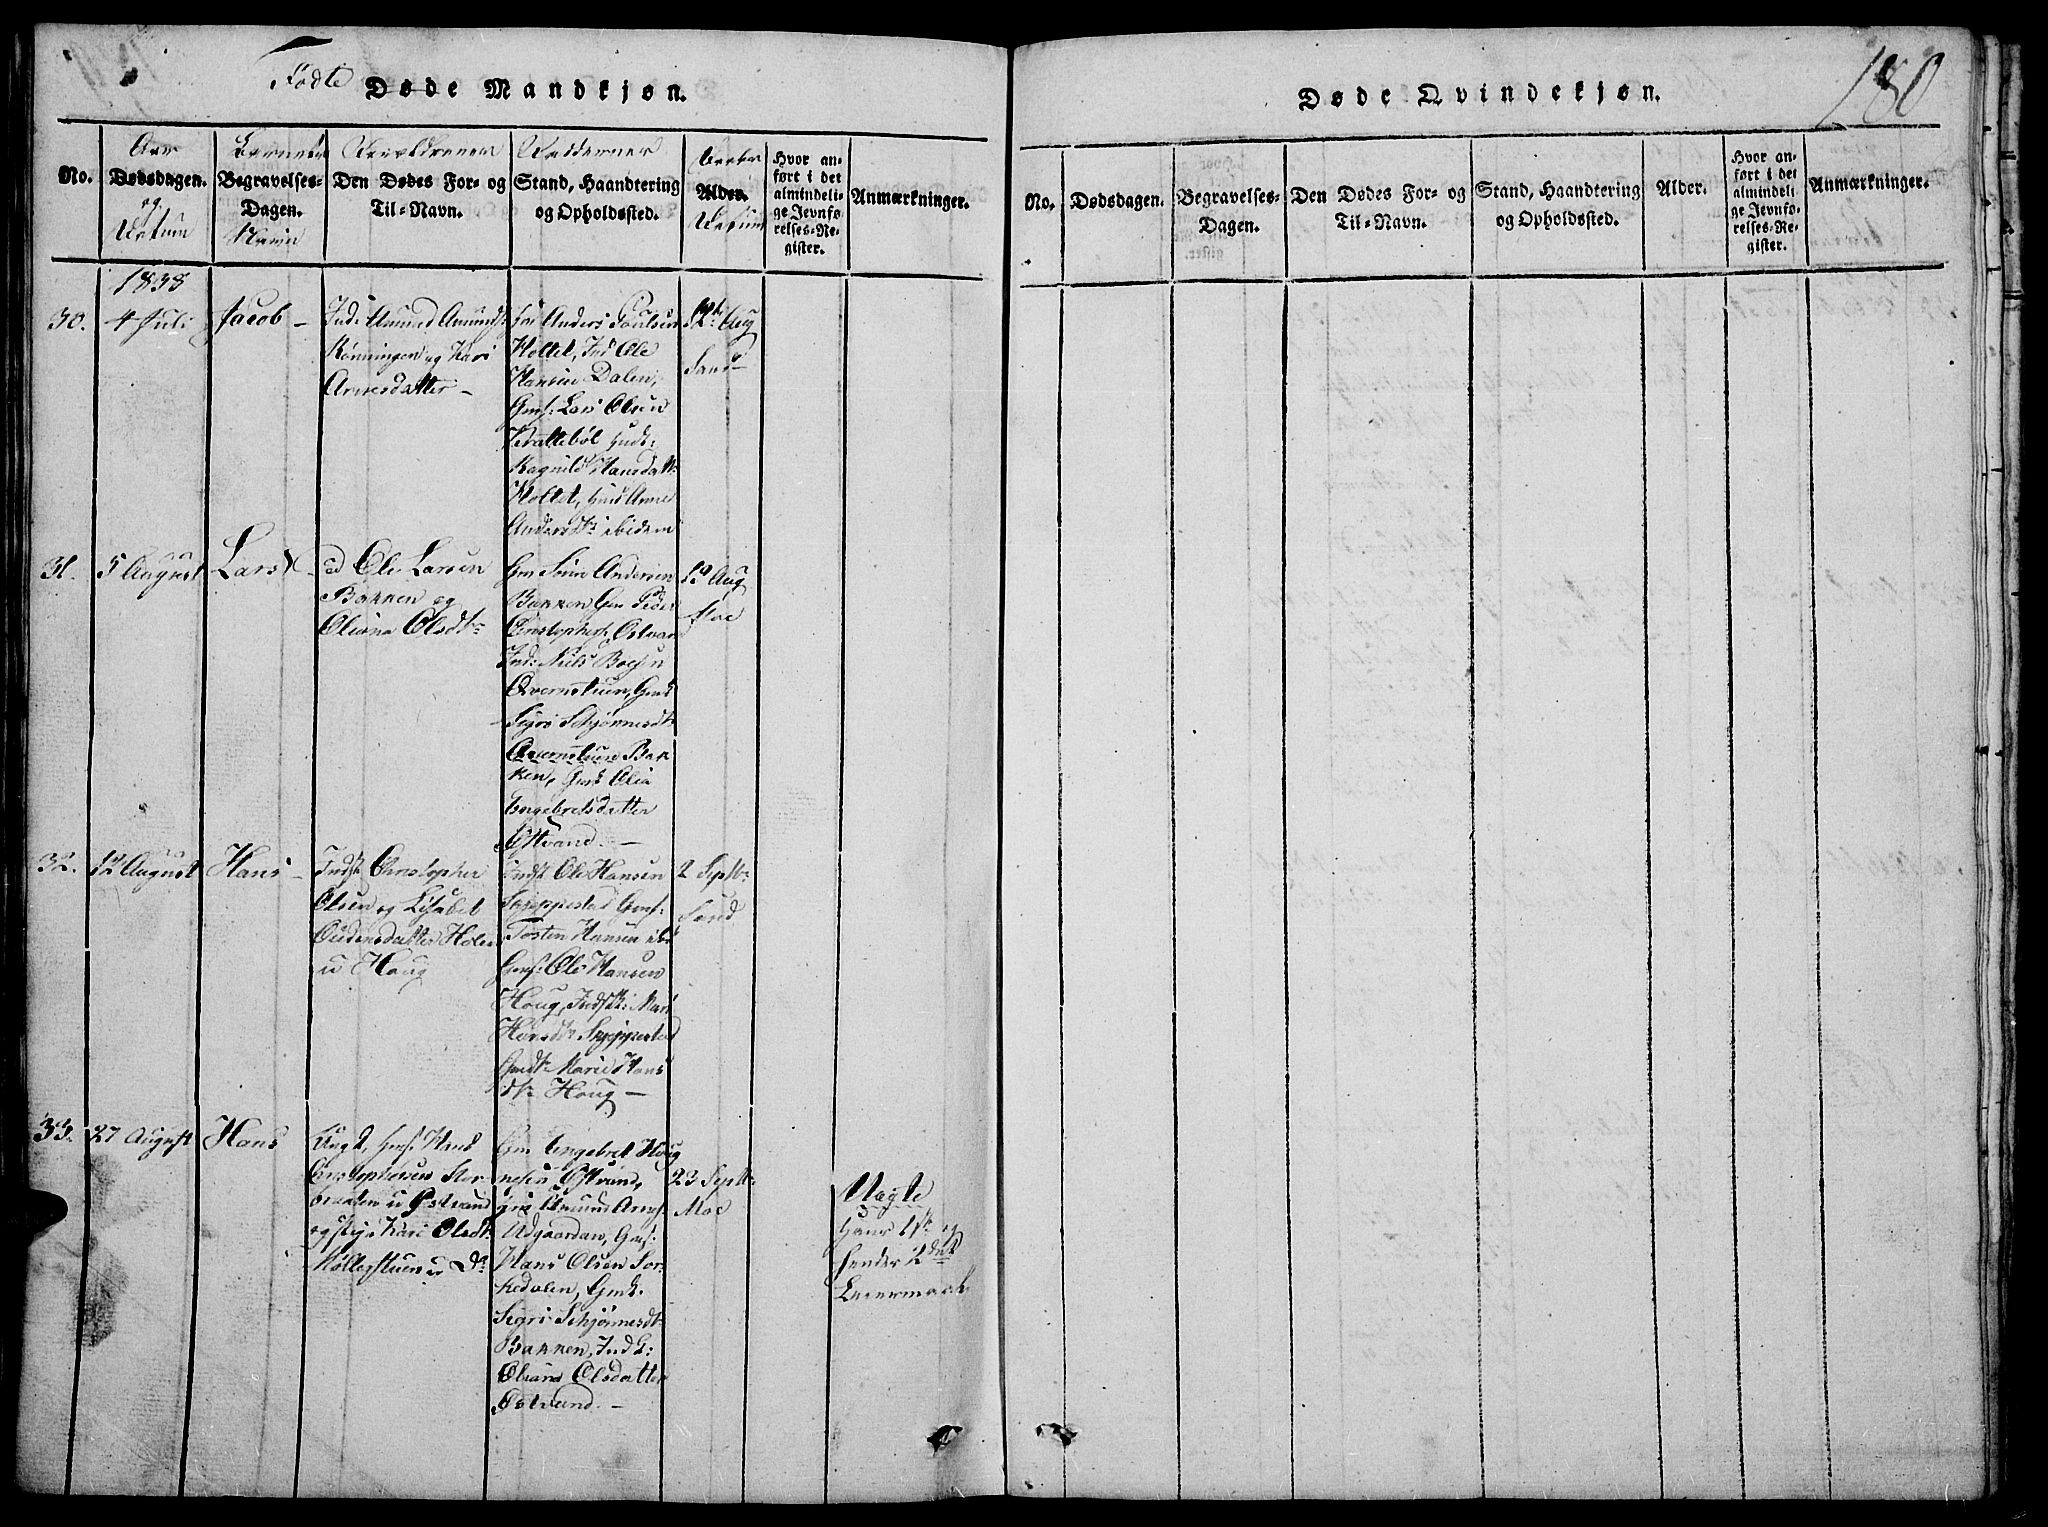 Fødte Døde Mandkjøn.
No.
Aar
Dødsdagen.
og
Datum
Barnets
Begravelses-
Dagen.
Navn
Forældrenes
Den Dødes For- og
Til-Navn.
Faddernes
Stand, Haandtering
og Opholdssted.
Alder.
Datum
Hvor an-
ført i det
almindeli-
ge Jevnfø-
relses-Re-
gister.
Anmærkninger.
1838
30.
4 Juli
Jacob –
Ind: Amund Amunds:
Rønningen og Kari
Arnesdatter –
Anders Poulsen
Holtet, Ind Ole
Hansen Dalen,
Gmf: Lars Olsen
Hudt:
Ragnild Hansdatt:
Holtet, Anne
Andersdt: ibidem
12te Aug
Sand
31.
5 August
Lars –
Ole Larsen
Bakken og
Oliana Olsdtr
Andersen
Bakken, Gm Peder
Christophers: Ostvan
Ind: Niels Boesen
Qvernstuen, Gmk
Sigri Schjønnesdtr
Qvernstuen Bak
ken, Gmk Olia
Engebretsdatter
Ostvand. –
19 Aug
Moe
32.
12 August
Hans –
Indst Christopher
Olsen og Lisabet
Oudensdatter Holen
u Houg
Indst Ole Hansen
Skjeppestad Gmf:
Tosten Hansen ibd
Gmf: Ole Hansen
Houg, Indstk: Mari
Hansdtr Skjeppestad
Marie Hans
dtr Houg –
2 Septbr
Sand
33.
27 August
Hans
Ungk, Hans
Christophersen Stor
braaten u Ostvand
og Kari Olsdtr
Møllerstuen u Do
Gm Engebret Houg
nesen Ostvand,
Amund Arnes:
Udgaarden, Gmf:
Hans Olsen Sor
kedalen, Gmk:
Sigri Schjønnesdtr
Bakken, Indk:
Oliana Olsdatter
Ostvand. –
23 Septbr
Moe
Uægte
Hans 1ste og
hendes 2det
Leiermaal
180
Døde Qvindekjøn.
No.
Dødsdagen.
Begravelses-
Dagen.
Den Dødes For- og
Til-Navn.
Stand, Haandtering
og Opholdssted.
Alder.
Hvor an-
ført i det
almindeli-
ge Jevnfø-
relses-Re-
gister.
Anmærkninger.